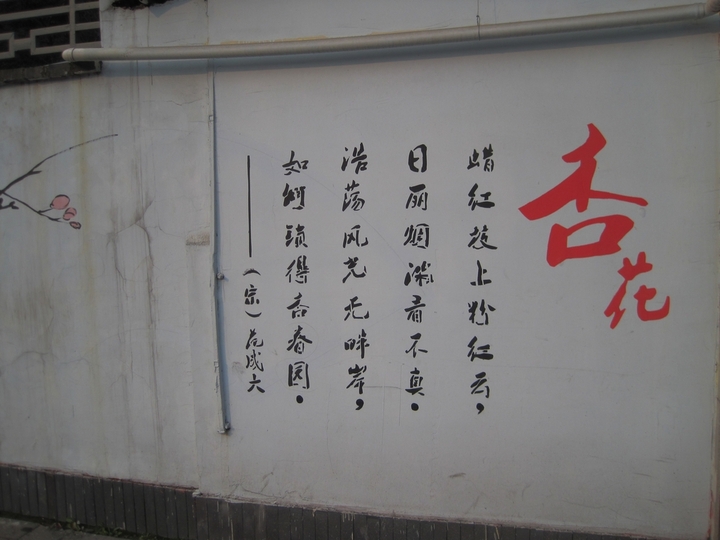 杏花
蜡红枝上粉红云，
日丽烟浓看不真。
浩荡风光无畔岸，
如何锁得杏春园。
——（宋）范成大